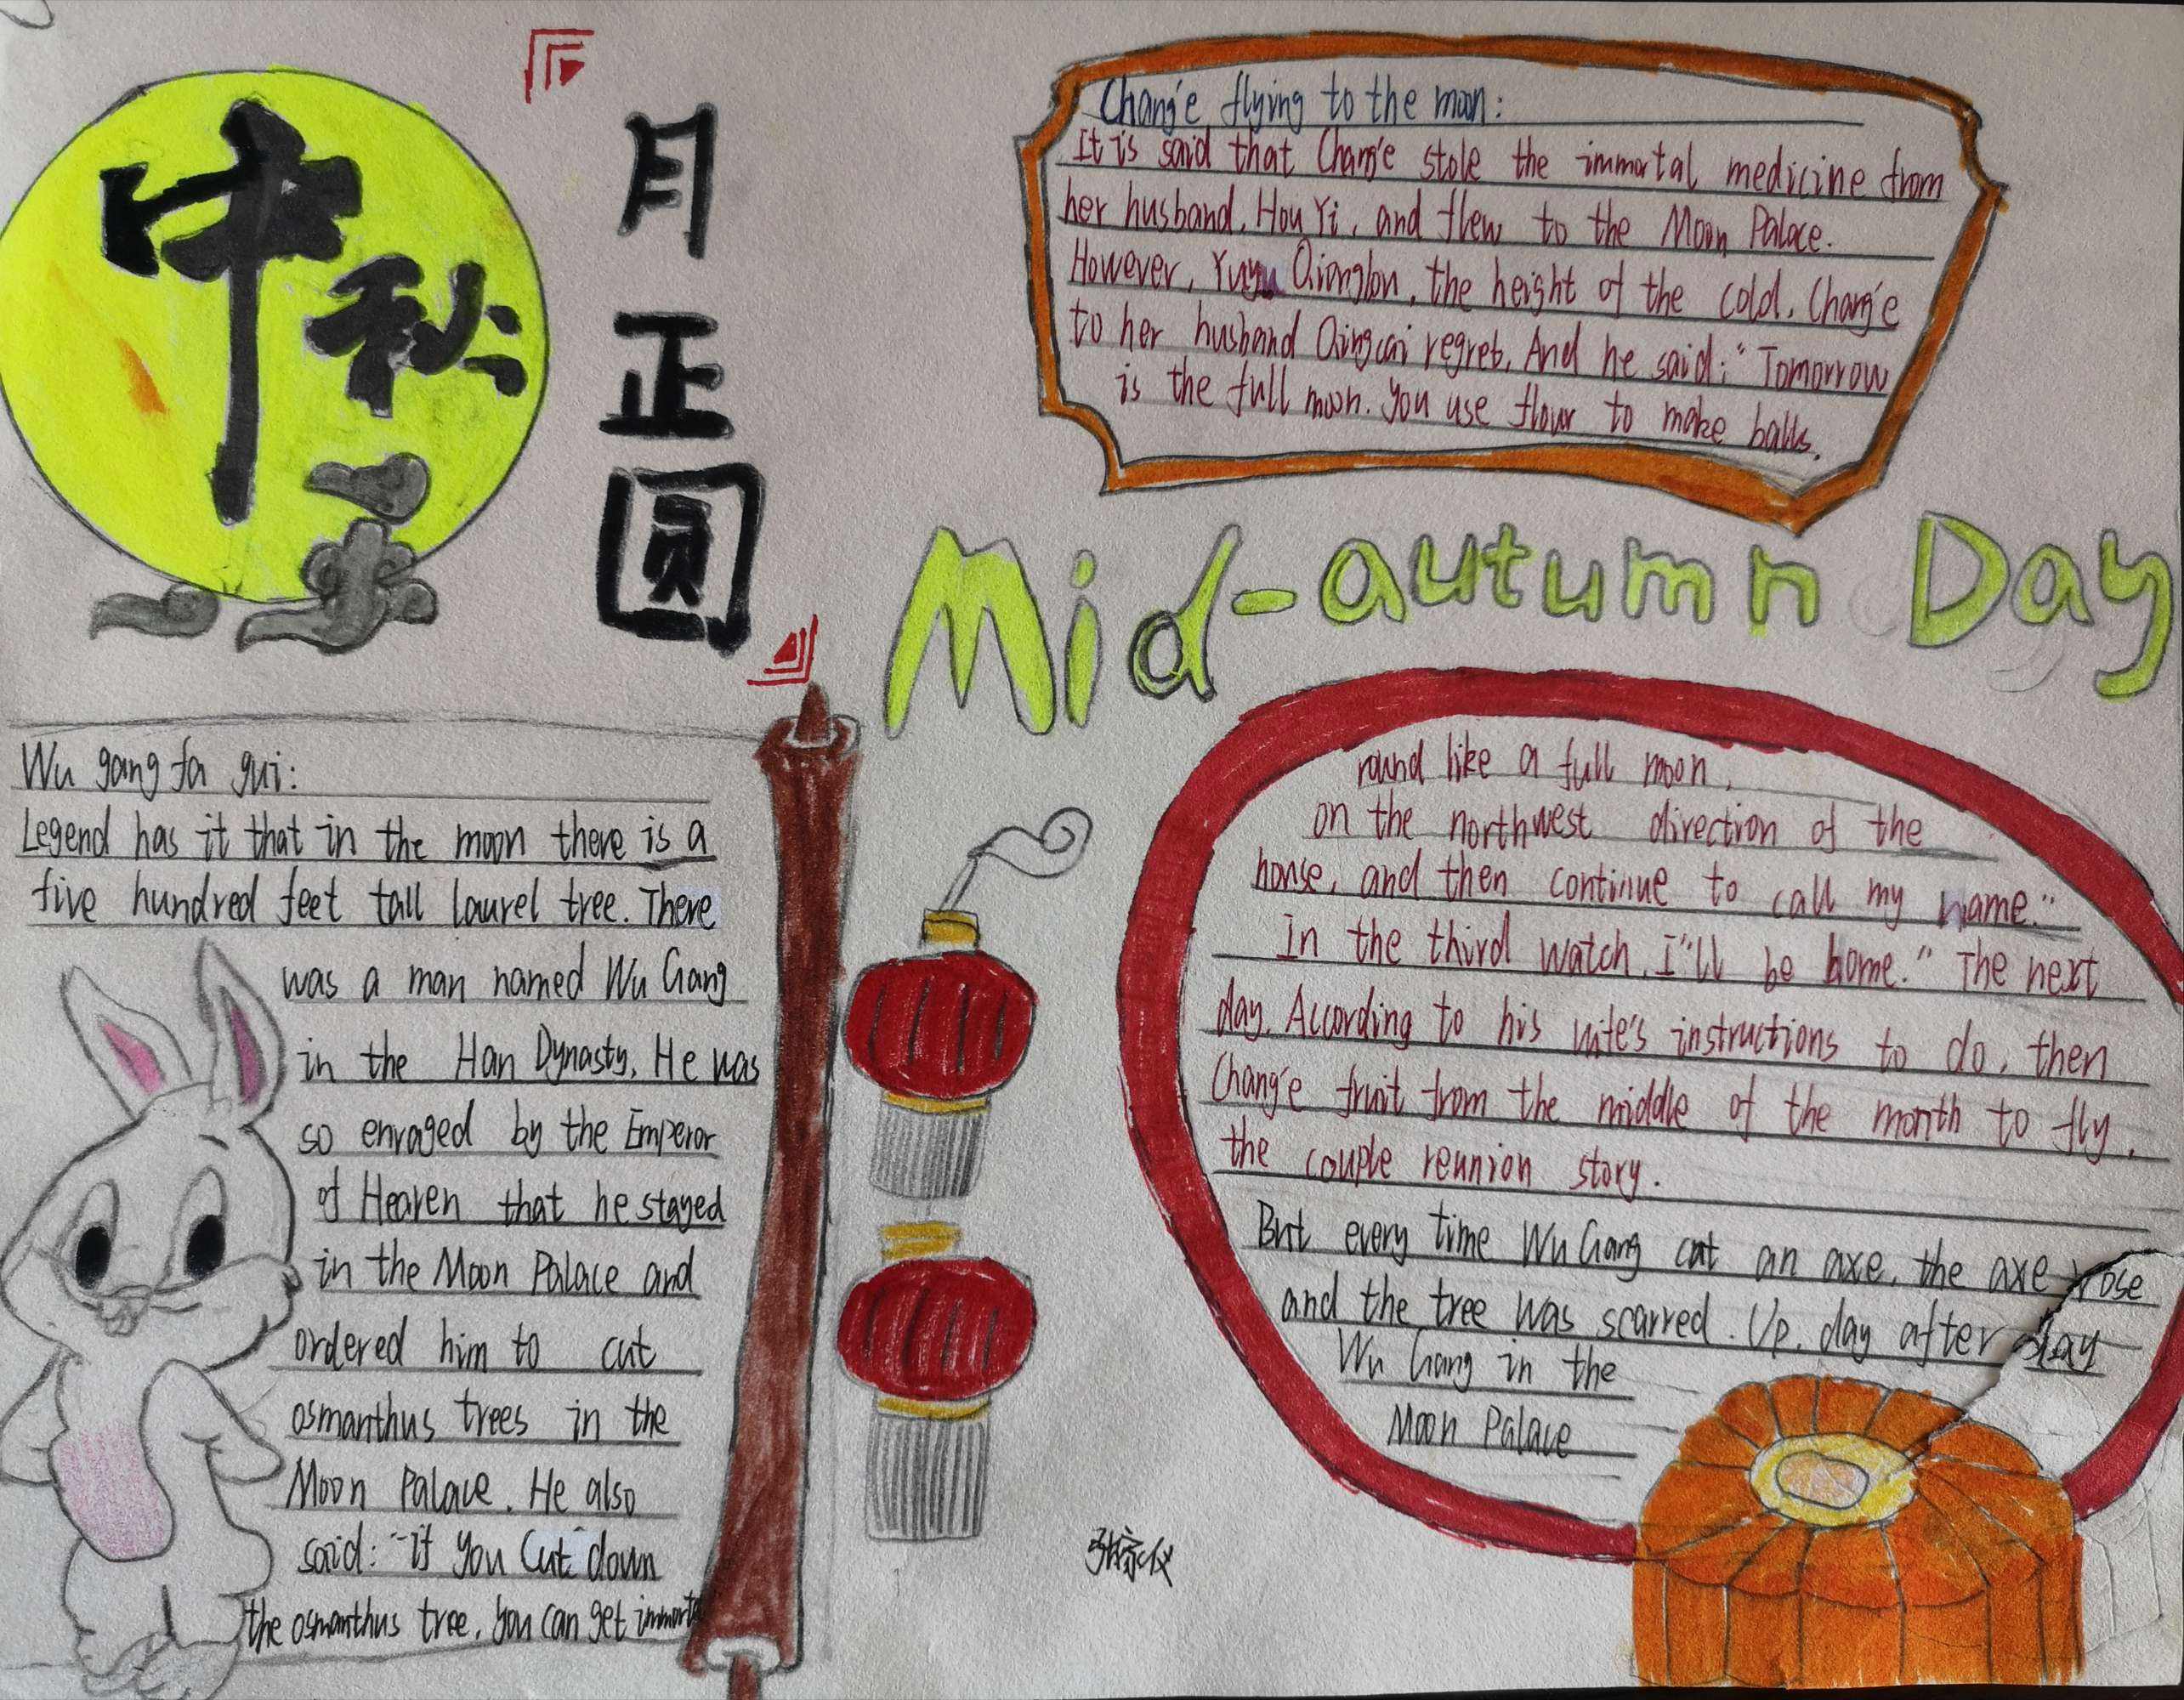 中秋
月正圆
Chang'e flying to the moon:
It is said that Chang'e stole the immortal medicine from
her husband, Hou Yi, and flew to the Moon Palace.
However, Yuyu Qionglou, the height of the cold. Chang'e
to her husband Qingcai regret. And he said: "Tomorrow
is the full moon. you use flour to make balls.
Mid-autumn Day
Wu gang fa gui:
Legend has it that in the moon there is a
five hundred feet tall laurel tree. There
was a man named Wu Gang
in the Han Dynasty. He was
so enraged by the Emperor
of Heaven that he stayed
in the Moon Palace and
ordered him to cut
osmanthus trees in the
Moon Palace. He also
said: "If you Cut down
the osmanthus tree, you can get immorta
round like a full moon,
on the northwest direction of the
house, and then continue to call my name."
In the third watch, I"ll be home." The next
day, According to his wife's instructions to do, then
Chang'e fruit from the middle of the month to fly,
the couple reunion story.
But every time Wu Gang cut an axe, the axe rose
and the tree was scarred. Up, day after day
Wu Gang in the
Moon Palace
张家仪